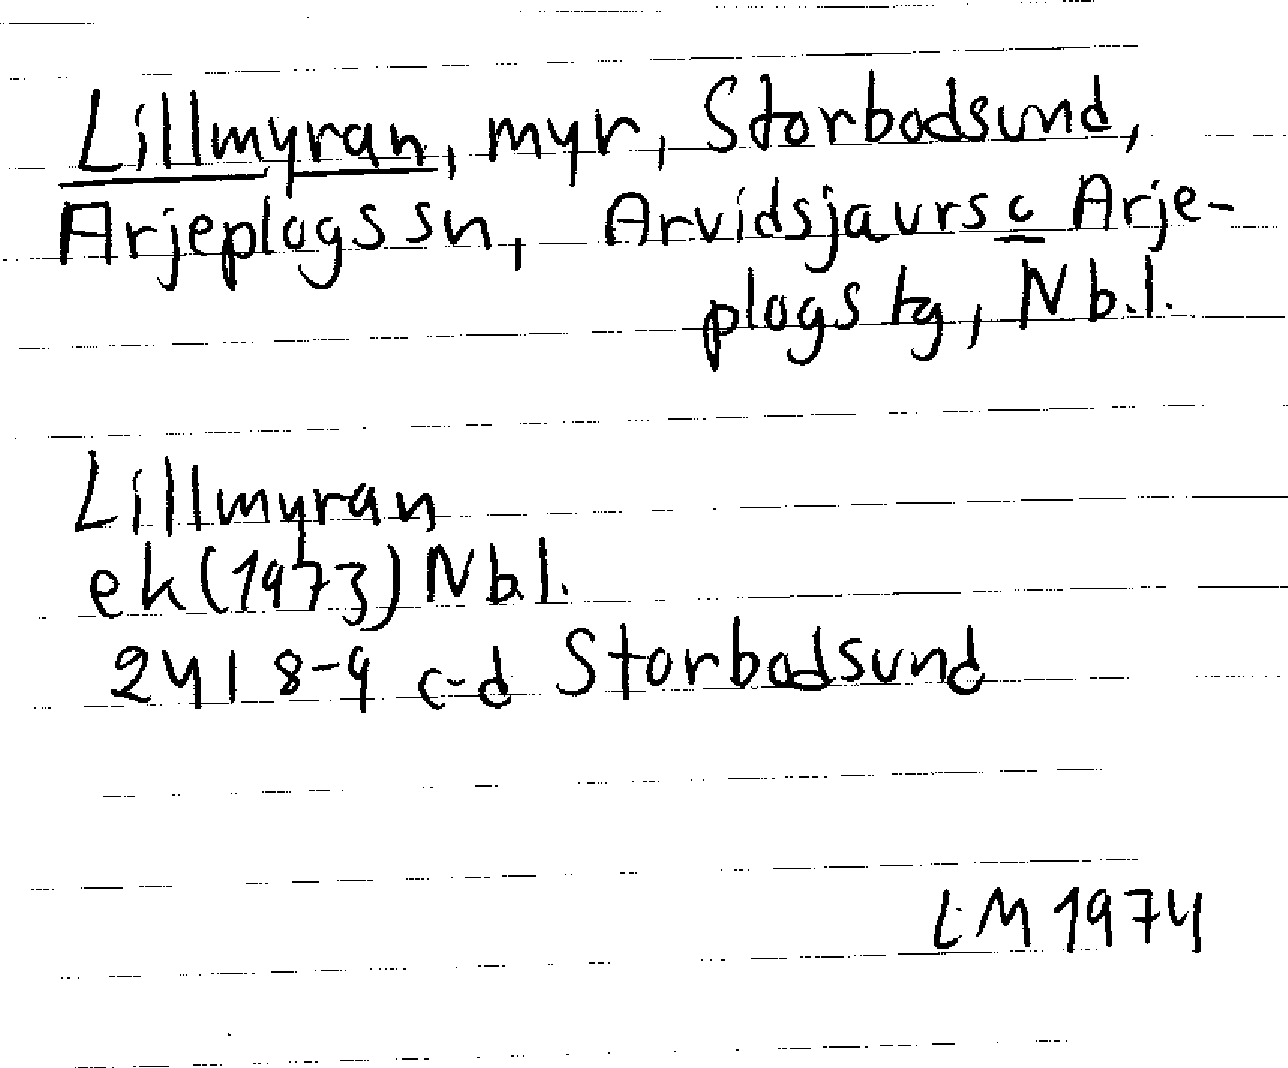 Lillmyran, myr, Storbodsund,
Arjeplogs sn, Arvidsjaurs o Arje-
plogs tg, Nb.l.
Lillmyran
ek (1973) Nb.l.
24I 8-9 c-d Storbodsund
LM 1974